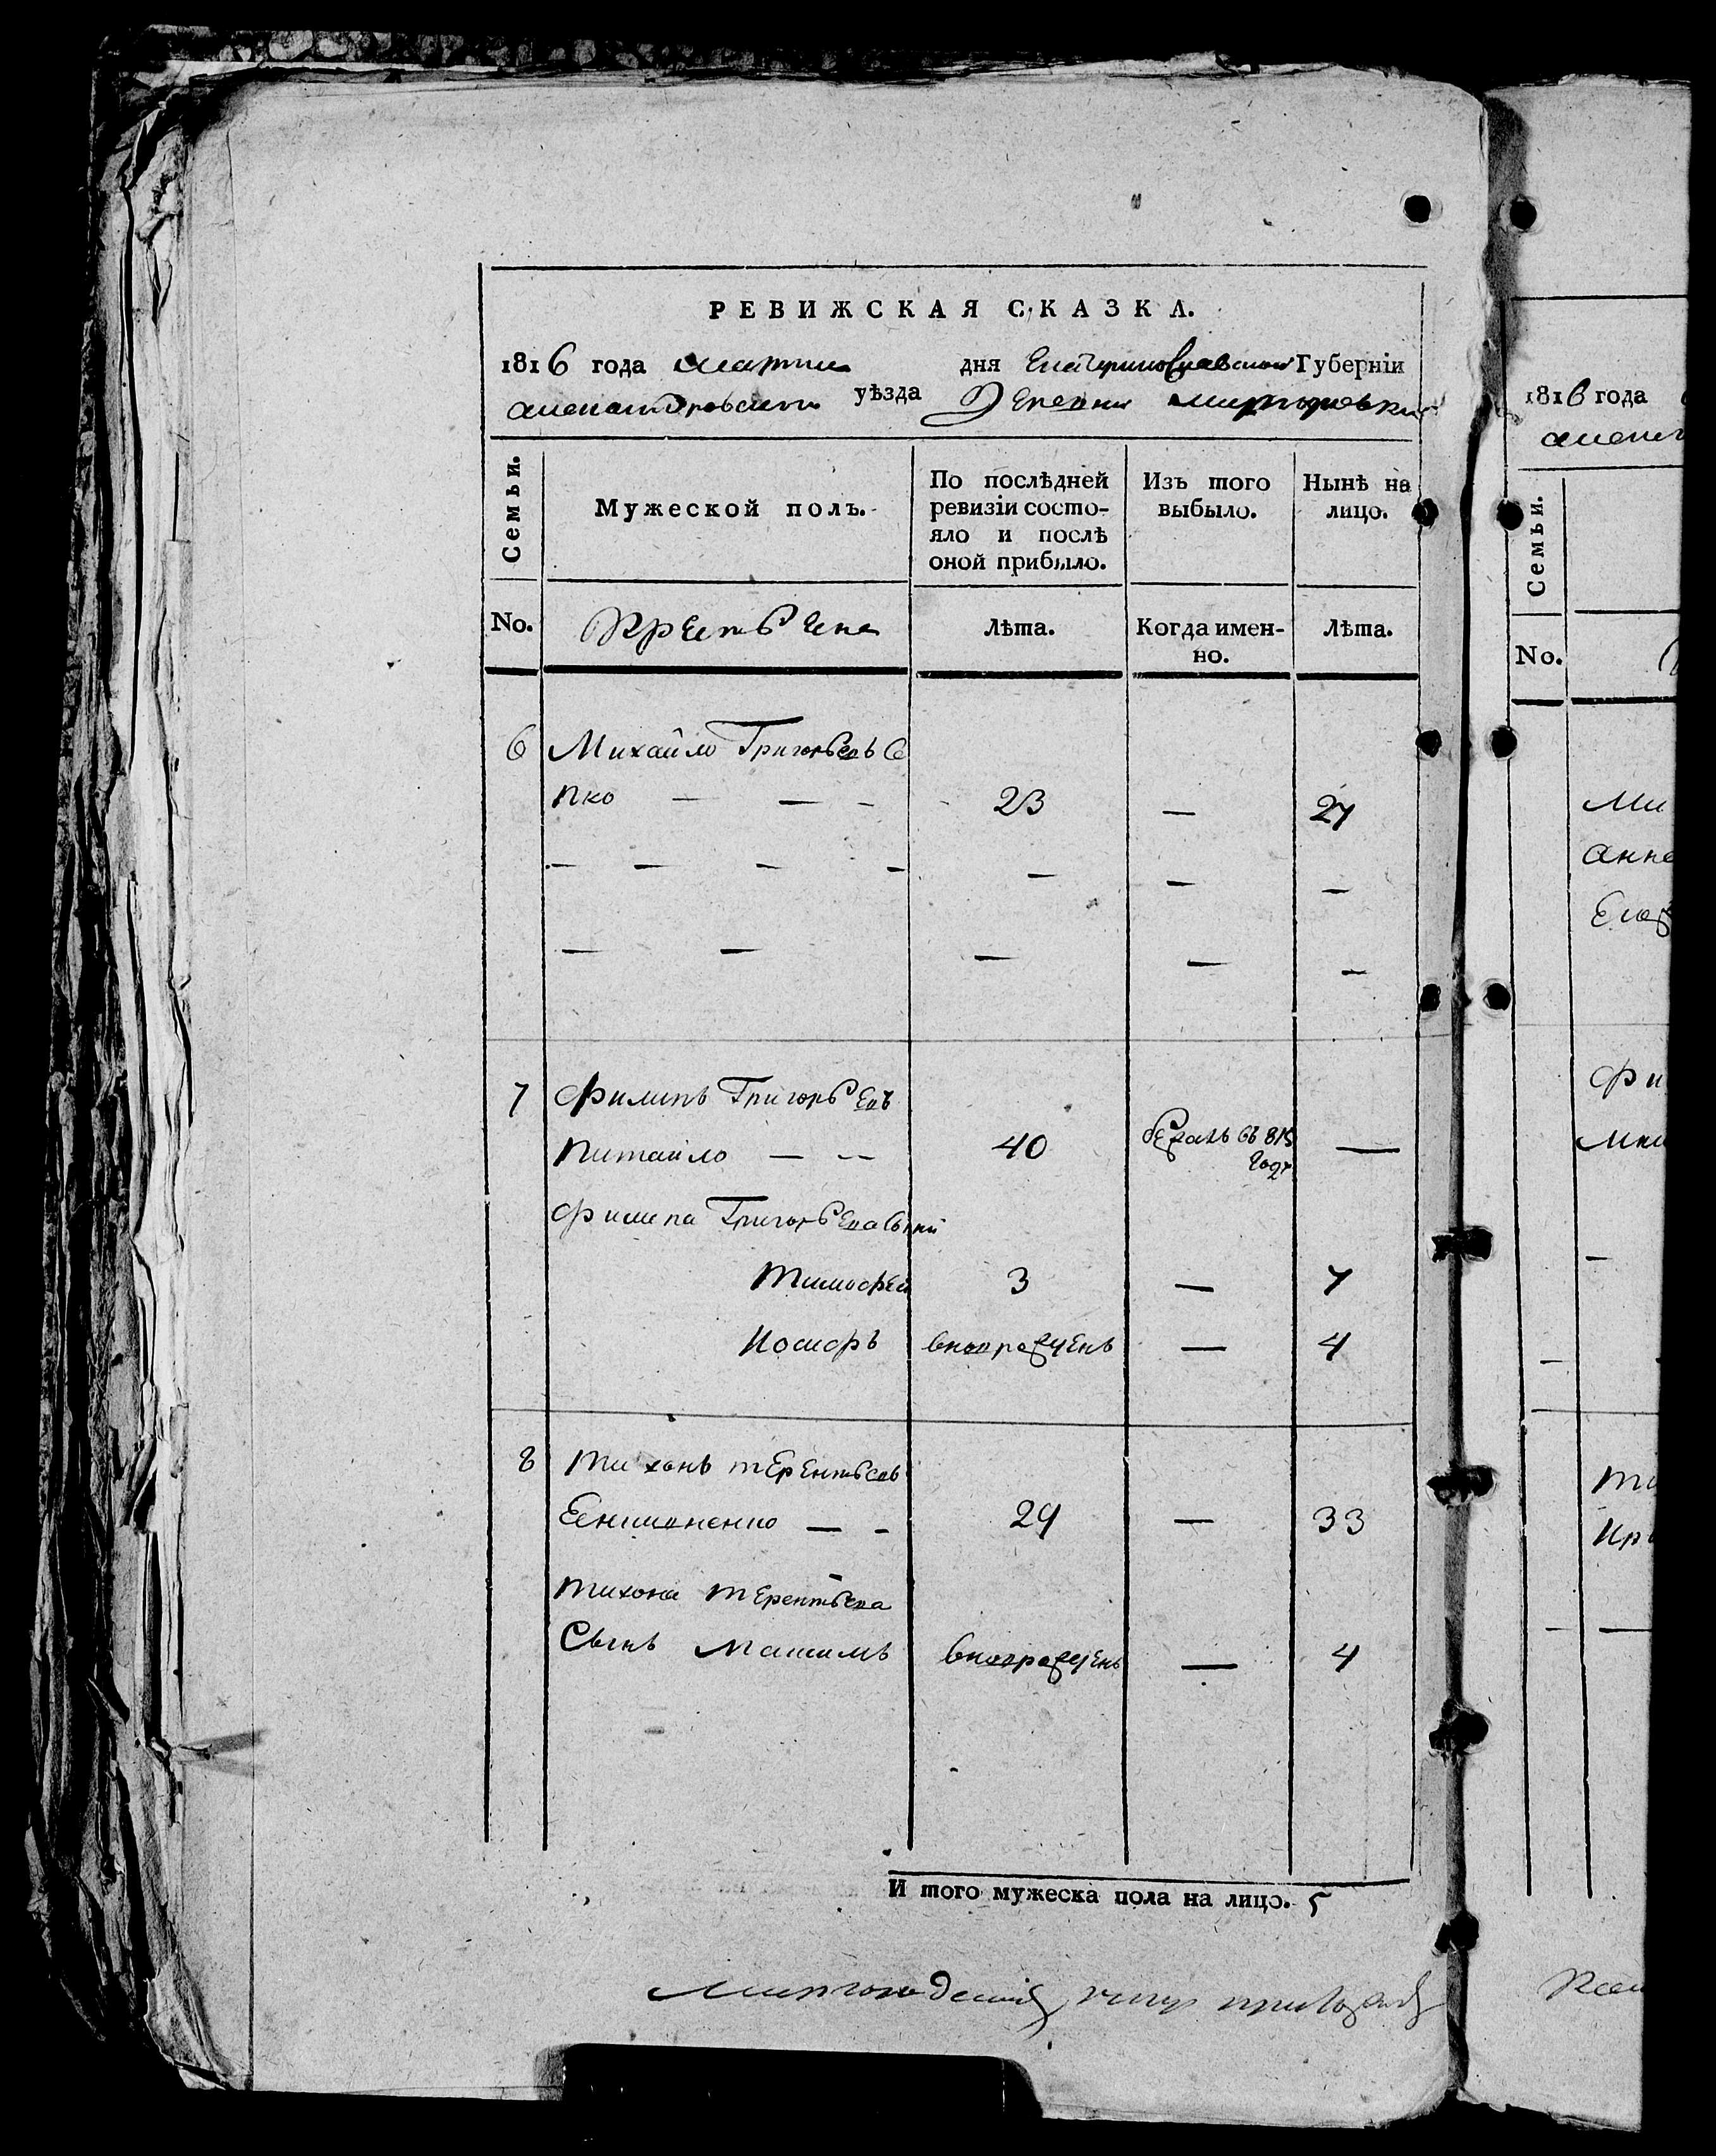 РЕВИЖСКАЯ СКАЗКА.
1816 года марта дня Екатеринославской Губерніи
александровскаго уѣзда Деревни
Семьи.
Мужеской полъ.
По послѣдней ревизіи состо-
яло и послѣ
оной прибыло.
Изъ того
выбыло.
Нынѣ на
лицо.
No.
Крестьяне
Лѣта.
Когда имен-
но.
Лѣта.
6 Михайло Григорьевъ
пко — — - 23 — 27
— — — - — — —
— — — — —
7 Филипъ Григорьевъ
Питайло — -- 40 бежалъ въ 815 —
году
Филипа Григорьева
Тимофей 3 — 7
Иосифъ вноврожденъ — 4
8 Тихонъ терентьевъ
— - 29 — 33
тихона терентьева
Сынъ Максимъ вноврожденъ — 4
И того мужеска пола на лицо. 5
1816 года
Семьи.
No.
Ми
анна
Фи